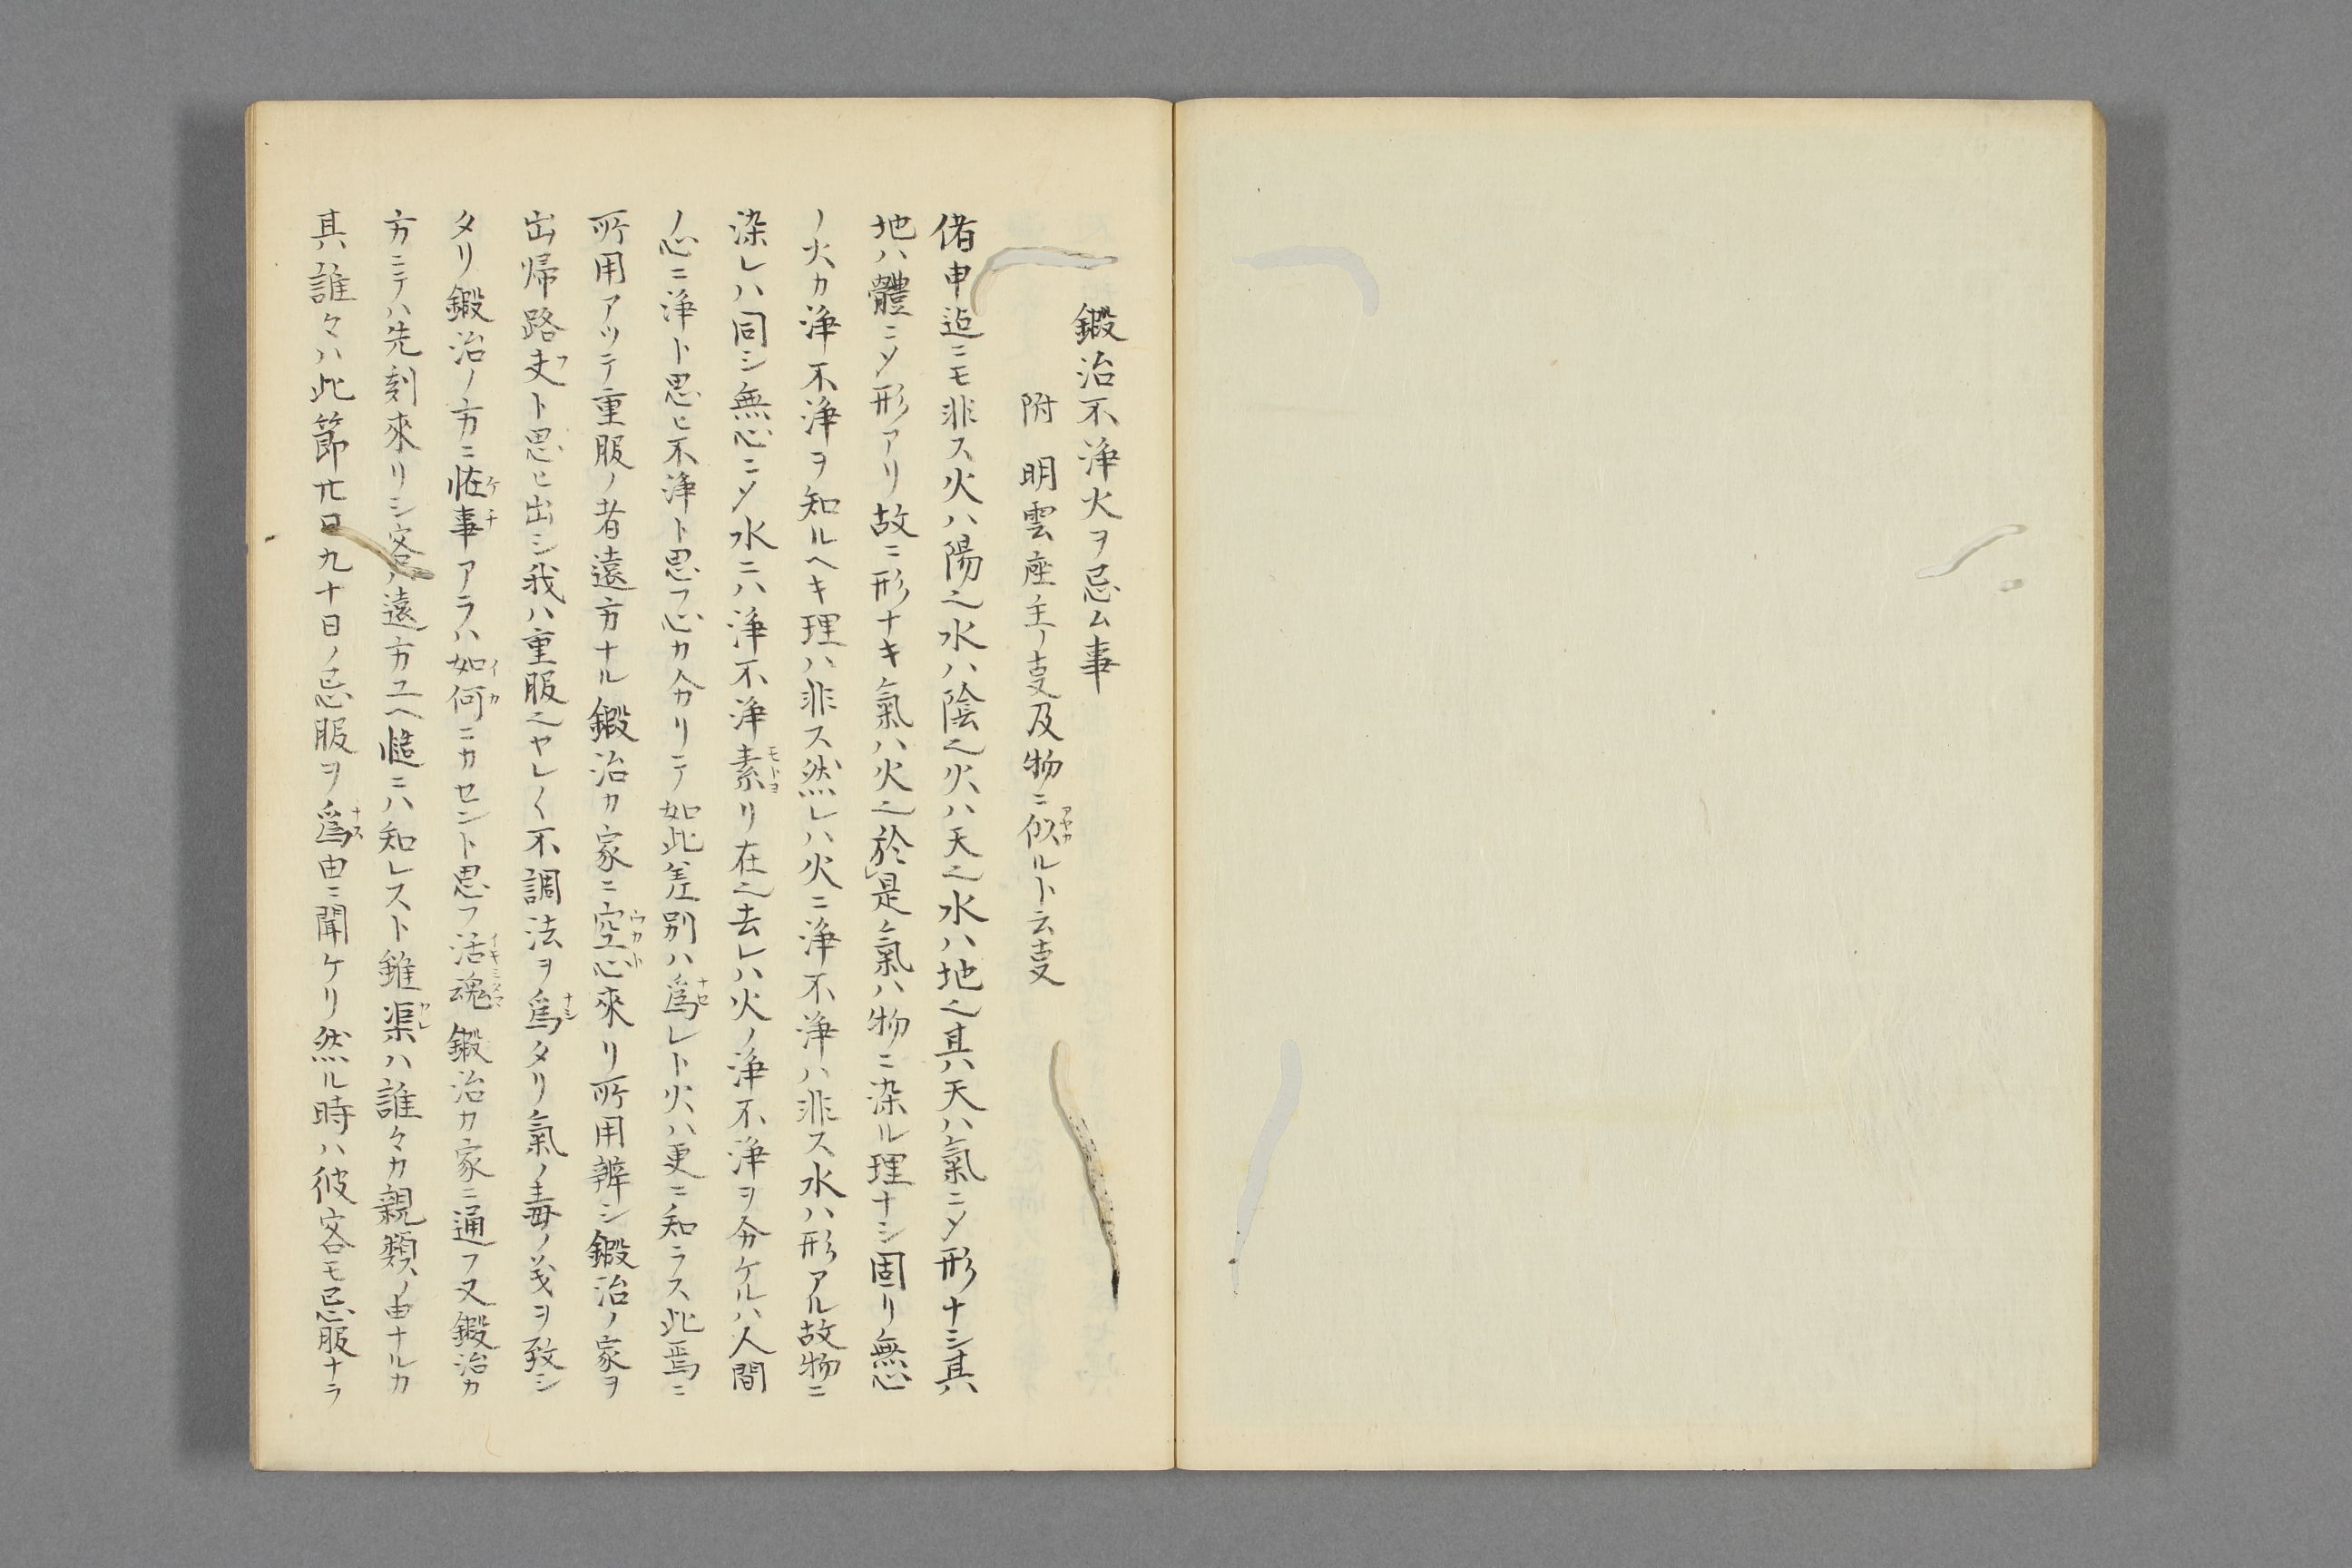 鍛冶不浄火ヲ忌ム事
附　明雲座主ノ叓及物ニ似ルト云叓
偖申迄ニモ非ス火ハ陽也水ハ陰也火ハ天也水ハ地也其天ハ氣ニメ形ナシ其
地ハ體ニメ形アリ故ニ形ナキ氣ハ火也於是氣ハ物ニ染ル理ナシ固リ無心
ノ火カ浄不浄ヲ知ルヘキ理ハ非ス然レハ火ニ浄不浄ハ非ス水ハ形アル故物ニ
染レハ同シ無心ニメ水ニハ浄不浄素リ在也去レハ火ノ浄不浄ヲ分ケルハ人間
ノ心ニ浄ト思ヒ不浄ト思フ心カ分リテ如此差別ハ為レト火ハ更ニ知ラス此焉ニ
所用アツテ重服ノ者遠方ナル鍛冶カ家ニ空心来リ所用辨シ鍛冶ノ家ヲ
出帰路叓ト思ヒ出シ我ハ重服也ヤレ〱不調法ヲ為タリ氣ノ毒ノ义ヲ致シ
タリ鍛冶ノ方ニ恠事アラハ如何ニカセント思フ活魂鍛冶カ家ニ通フ又鍛冶カ
方ニテハ先刻來リシ客ノ遠方ユヘ慥ニハ知レスト雖渠ハ誰々カ親類ノ由ナルカ
其誰々ハ此節廿日九十日ノ忌服ヲ為由ニ聞ケリ然ル時ハ彼客モ忌服ナラ